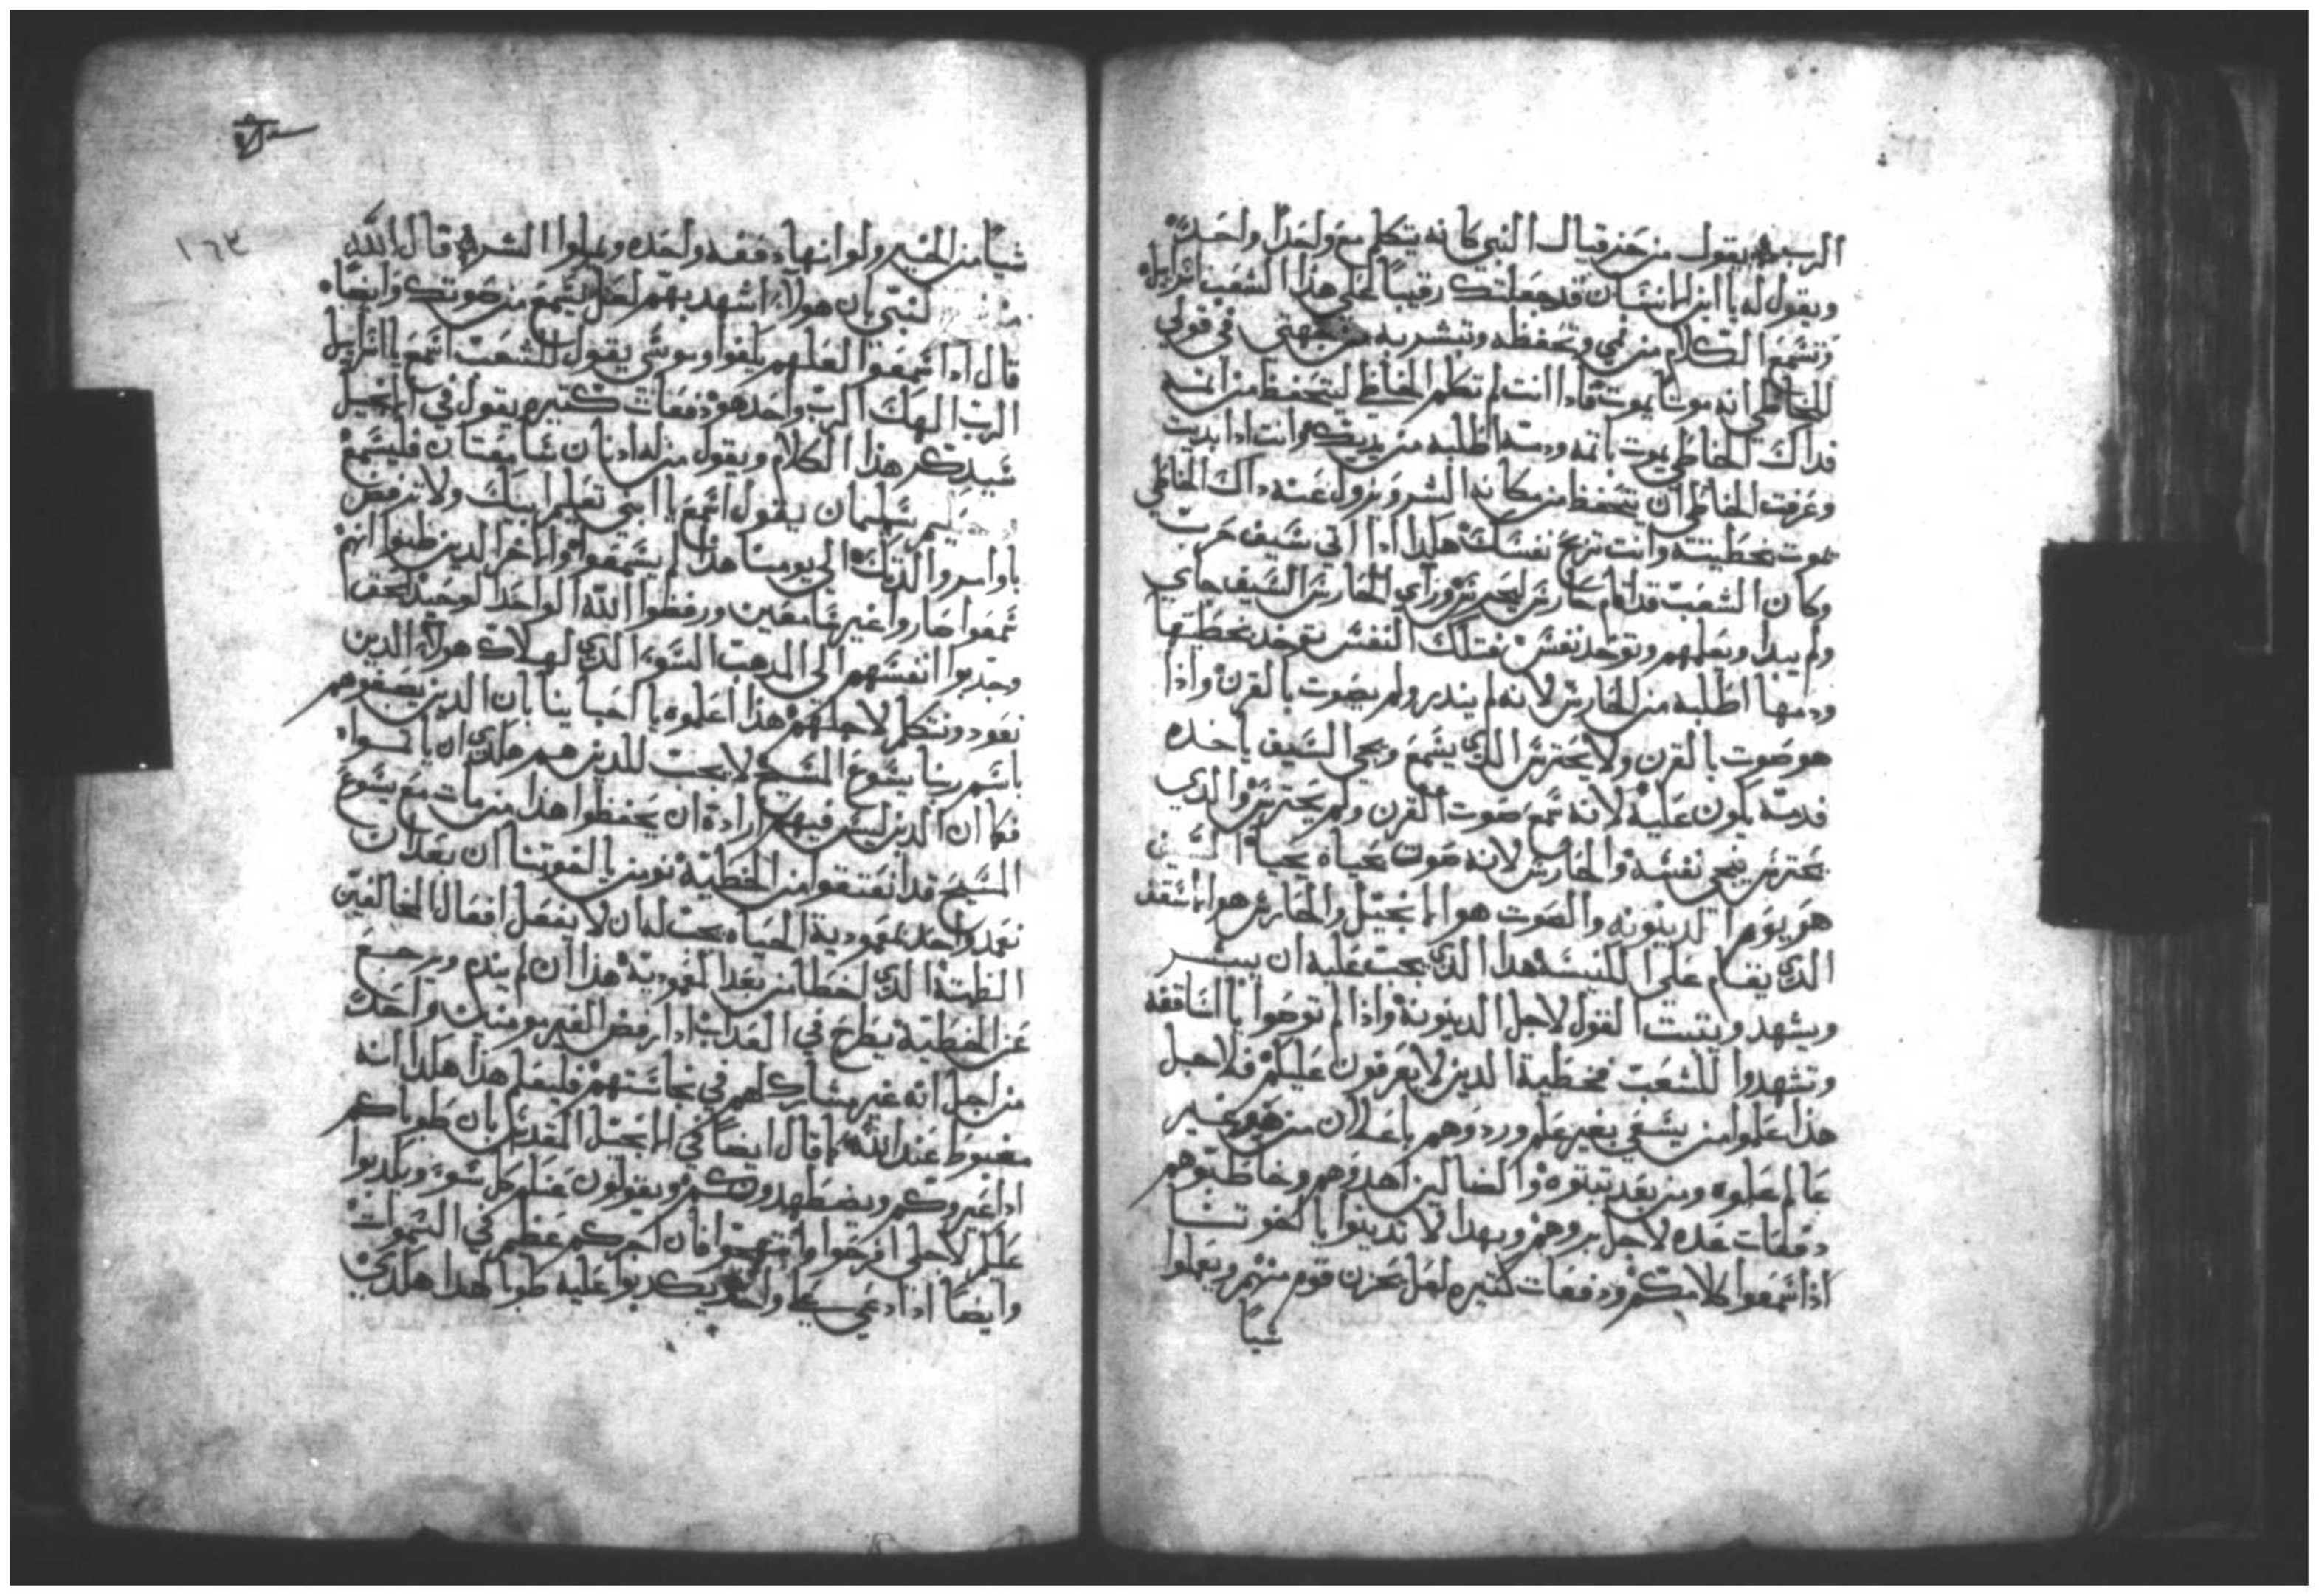 الرب يقول من حزقيال النبي كانه يتكلم مع واحدًا واحد
ويقول له يا ابن الانسان قد جعلتك رقيبًا علي هذا الشعب اسراييل
وتسمع الكلام من فمي وتحفظه وتبشر به من جهتي في قولي
للخاطي انه موتا يموت فادا انت لم تكلم الخاطي ليتحفظ من اتمه
فداك الخاطي يموت باتمه ودمه اطلبه من يديك وانت ادا بديت
وعرفت الخاطي ان يتحفظ من مكانه الشر ويزول عنه داك الخاطي
يموت بخطيته وانت تربح نفسك هكدا ادا اتي سيف حرب
وكان الشعب قد اقام حارس ليحترس وراي الحارس السيف جاي
ولم يبدا ويعلمهم وتوخد نفس فتلك النفس توخد بخطيتها
ودمها اطلبه من الحارس لانه لم يندر ولم يصوت بالقرن واذا
هو صوت بالقرن ولا يحترس الدي يسمع ويجي السيف ياخده
فدمه يكون عليه لانه سمع صوت القرن ولم يحترس والدي
يحترس ينجي نفسه والحارس لانه صوت بحياه يحيا السيف
هو يوم الدينونه والصوت هو الانجيل والحارس هو الاسقف
الدي يقام علي الكنيسه هدا الدي يجب عليه ان يبشر
ويشهد ويتبت القول لاجل الدينونة واذا لم توصوا يا اساقفه
وتشهدوا للشعب فخطية الدين لا يعرفون عليكم فلاجل
هذا علموا من يسعي بغير علم وردوهم باعلان من هو غير
عالم علموه ومن بعد تبتوه والضالين اهدوهم وخاطبتوهم
دفعات عده لاجل بروهم وبهدا لا تدينوا يا اخوتنا
اذا سمعوا كلامكم ودفعات كتيره لعل يحزن قوم منهم ويعملوا
شيًا
١٦٣
شيًا من الخير ولو انها دفعه واحده وعملوا الشر قال الله
للنبي بان هولاء اشهد بهم لعل يسمع من صوتك وايضًا
قال ادا سمعوا لعلهم يكفوا وموسي يقول للشعب اسمع يا اسراييل
الرب الهك الرب واحد هو دفعات كتيره يقول في الانجيل
سيدكر هذا الكلام ويقول من له ادنان سامعتان فليسمع
سليمان يقول اسمع يا ابني تعليم ابيك ولا ترفض
باوامر والدتك الي يومنا هذا لم يسمعوا والاخر الدين ظنوا انهم
سمعوا صاروا غير سامعين ورفظوا الله الواحد الوحيد بحق
وجدبوا انفسهم الي المدهب السوء الدي لهلاك هولاء الدين
نعود ونتكلم لاجلهم هذا اعلموه يا احباينا بان الدين يصبغوهم
باسم ربنا يسوع المسيح لا يجب للدين هم هكدي ان يا
فكما ان الدين ليس فيهم ارادة ان يحفظوا هذا من مات مع يسوع
المسيح قد انعتقوا من الخطية نومن يا اخوتنا ان بعد ان
تعمد واحد بمعمودية الحياه يجب له ان لا يفعل افعال المخالفين
الظلمة الدي اخطا من بعد المعمودية هذا ان لم يندم ويرجع
عن الخطية يطرح في العداب ادا رفض الغير مومنين واحد
من اجل انه غير مشارك لهم في نجاستهم فليعلم هذا هكدا انه
مغبوط عند الله كما قال ايضًا في الانجيل المقدس بان طوباكم
ادا عيروكم ويضطهدونكم ويقولون عنكم كل سوء ويكدبوا
عليكم لاجلي افرحوا وابتهجوا فان اجركم عظيم في السموات
وايضًا ادا دعي علي واحد ويكدبوا عليه طوبا لهدا هكدي